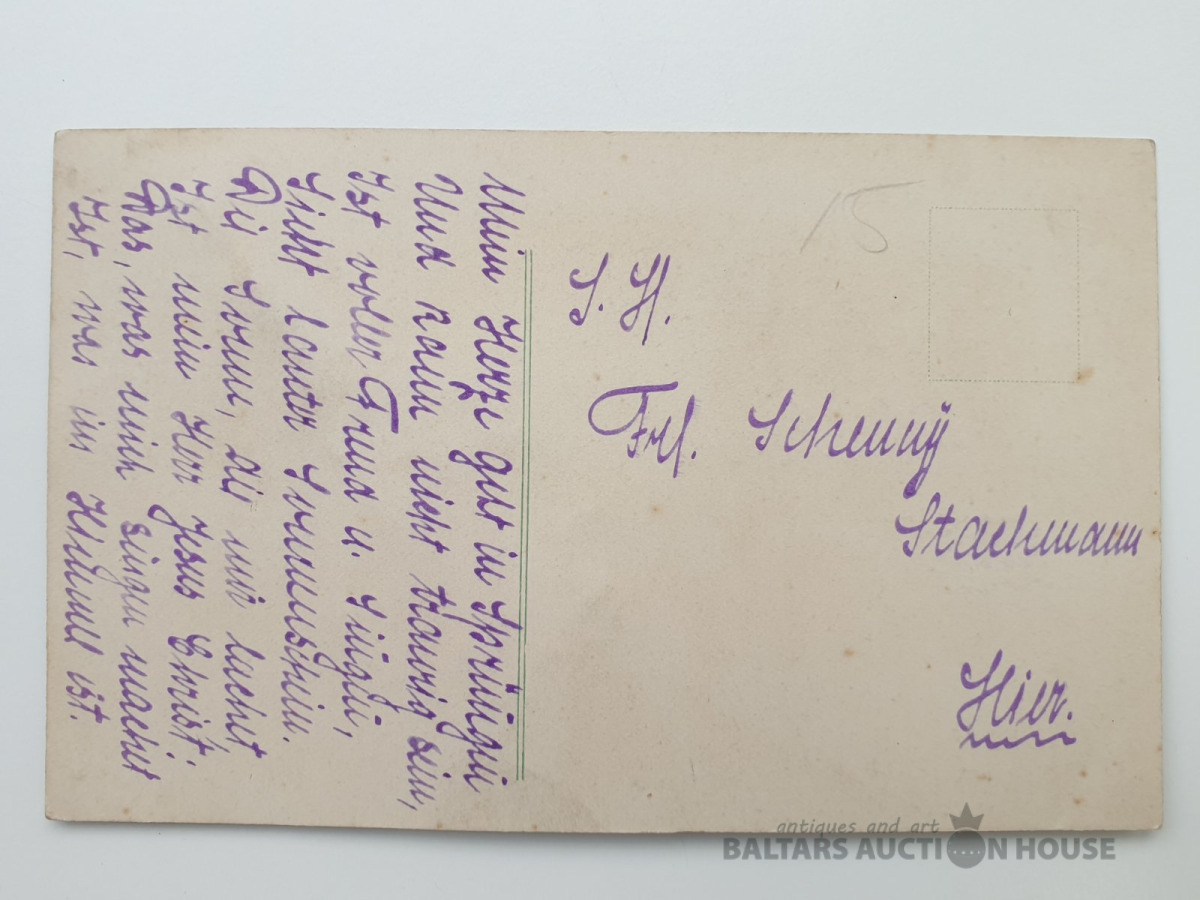 Mein Herze geht in Sprüngen
Und kann nicht traurig sein,
Ist voller Freud u. Singen,
Sieht lauter Sonnenschein.
Die Sonne, die mir lachet,
Ist mein Herr Jesus Christ.
Das, was mich singen machet
Ist, was im Himmel ist.
15
S. H.
Frl. Schenny
Stachmann
Hier.
antiques and art
BALTARS AUCTION HOUSE